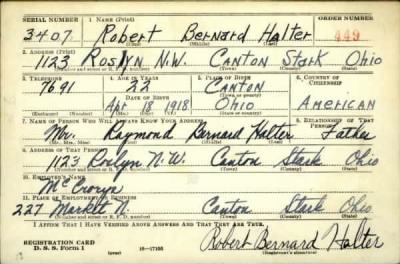 SERIAL NUMBER 1. NAME (Print) ORDER NUMBER
3407 Robert Bernard Halter 449
(First) (Middle) (Last)
2. ADDRESS (Print)
1123 Roslyn N.W. Canton Stark Ohio
(Number and street or R. F. D. number) (Town) (County) (State)
3. TELEPHONE 4. AGE IN YEARS 5. PLACE OF BIRTH 6. COUNTRY OF CITIZENSHIP
7691 22 Canton
DATE OF BIRTH (Town or county)
Apr 18 1918 Ohio American
(Exchange) (Number) (Mo.) (Day) (Yr.) (State or country)
7. NAME OF PERSON WHO WILL ALWAYS KNOW YOUR ADDRESS 8. RELATIONSHIP OF THAT PERSON
Mr. Raymond Bernard Halter Father
(Mr., Mrs., Miss) (First) (Middle) (Last)
9. ADDRESS OF THAT PERSON
1123 Roslyn N.W. Canton Stark Ohio
(Number and street or R. F. D. number) (Town) (County) (State)
10. EMPLOYER'S NAME
11. PLACE OF EMPLOYMENT OR BUSINESS
227 Market N. Canton Stark Ohio
(Number and street or R. F. D. number) (Town) (County) (State)
I AFFIRM THAT I HAVE VERIFIED ABOVE ANSWERS AND THAT THEY ARE TRUE.
REGISTRATION CARD
D. S. S. Form 1 16—17105 Robert Bernard Halter
(Registrant's signature)